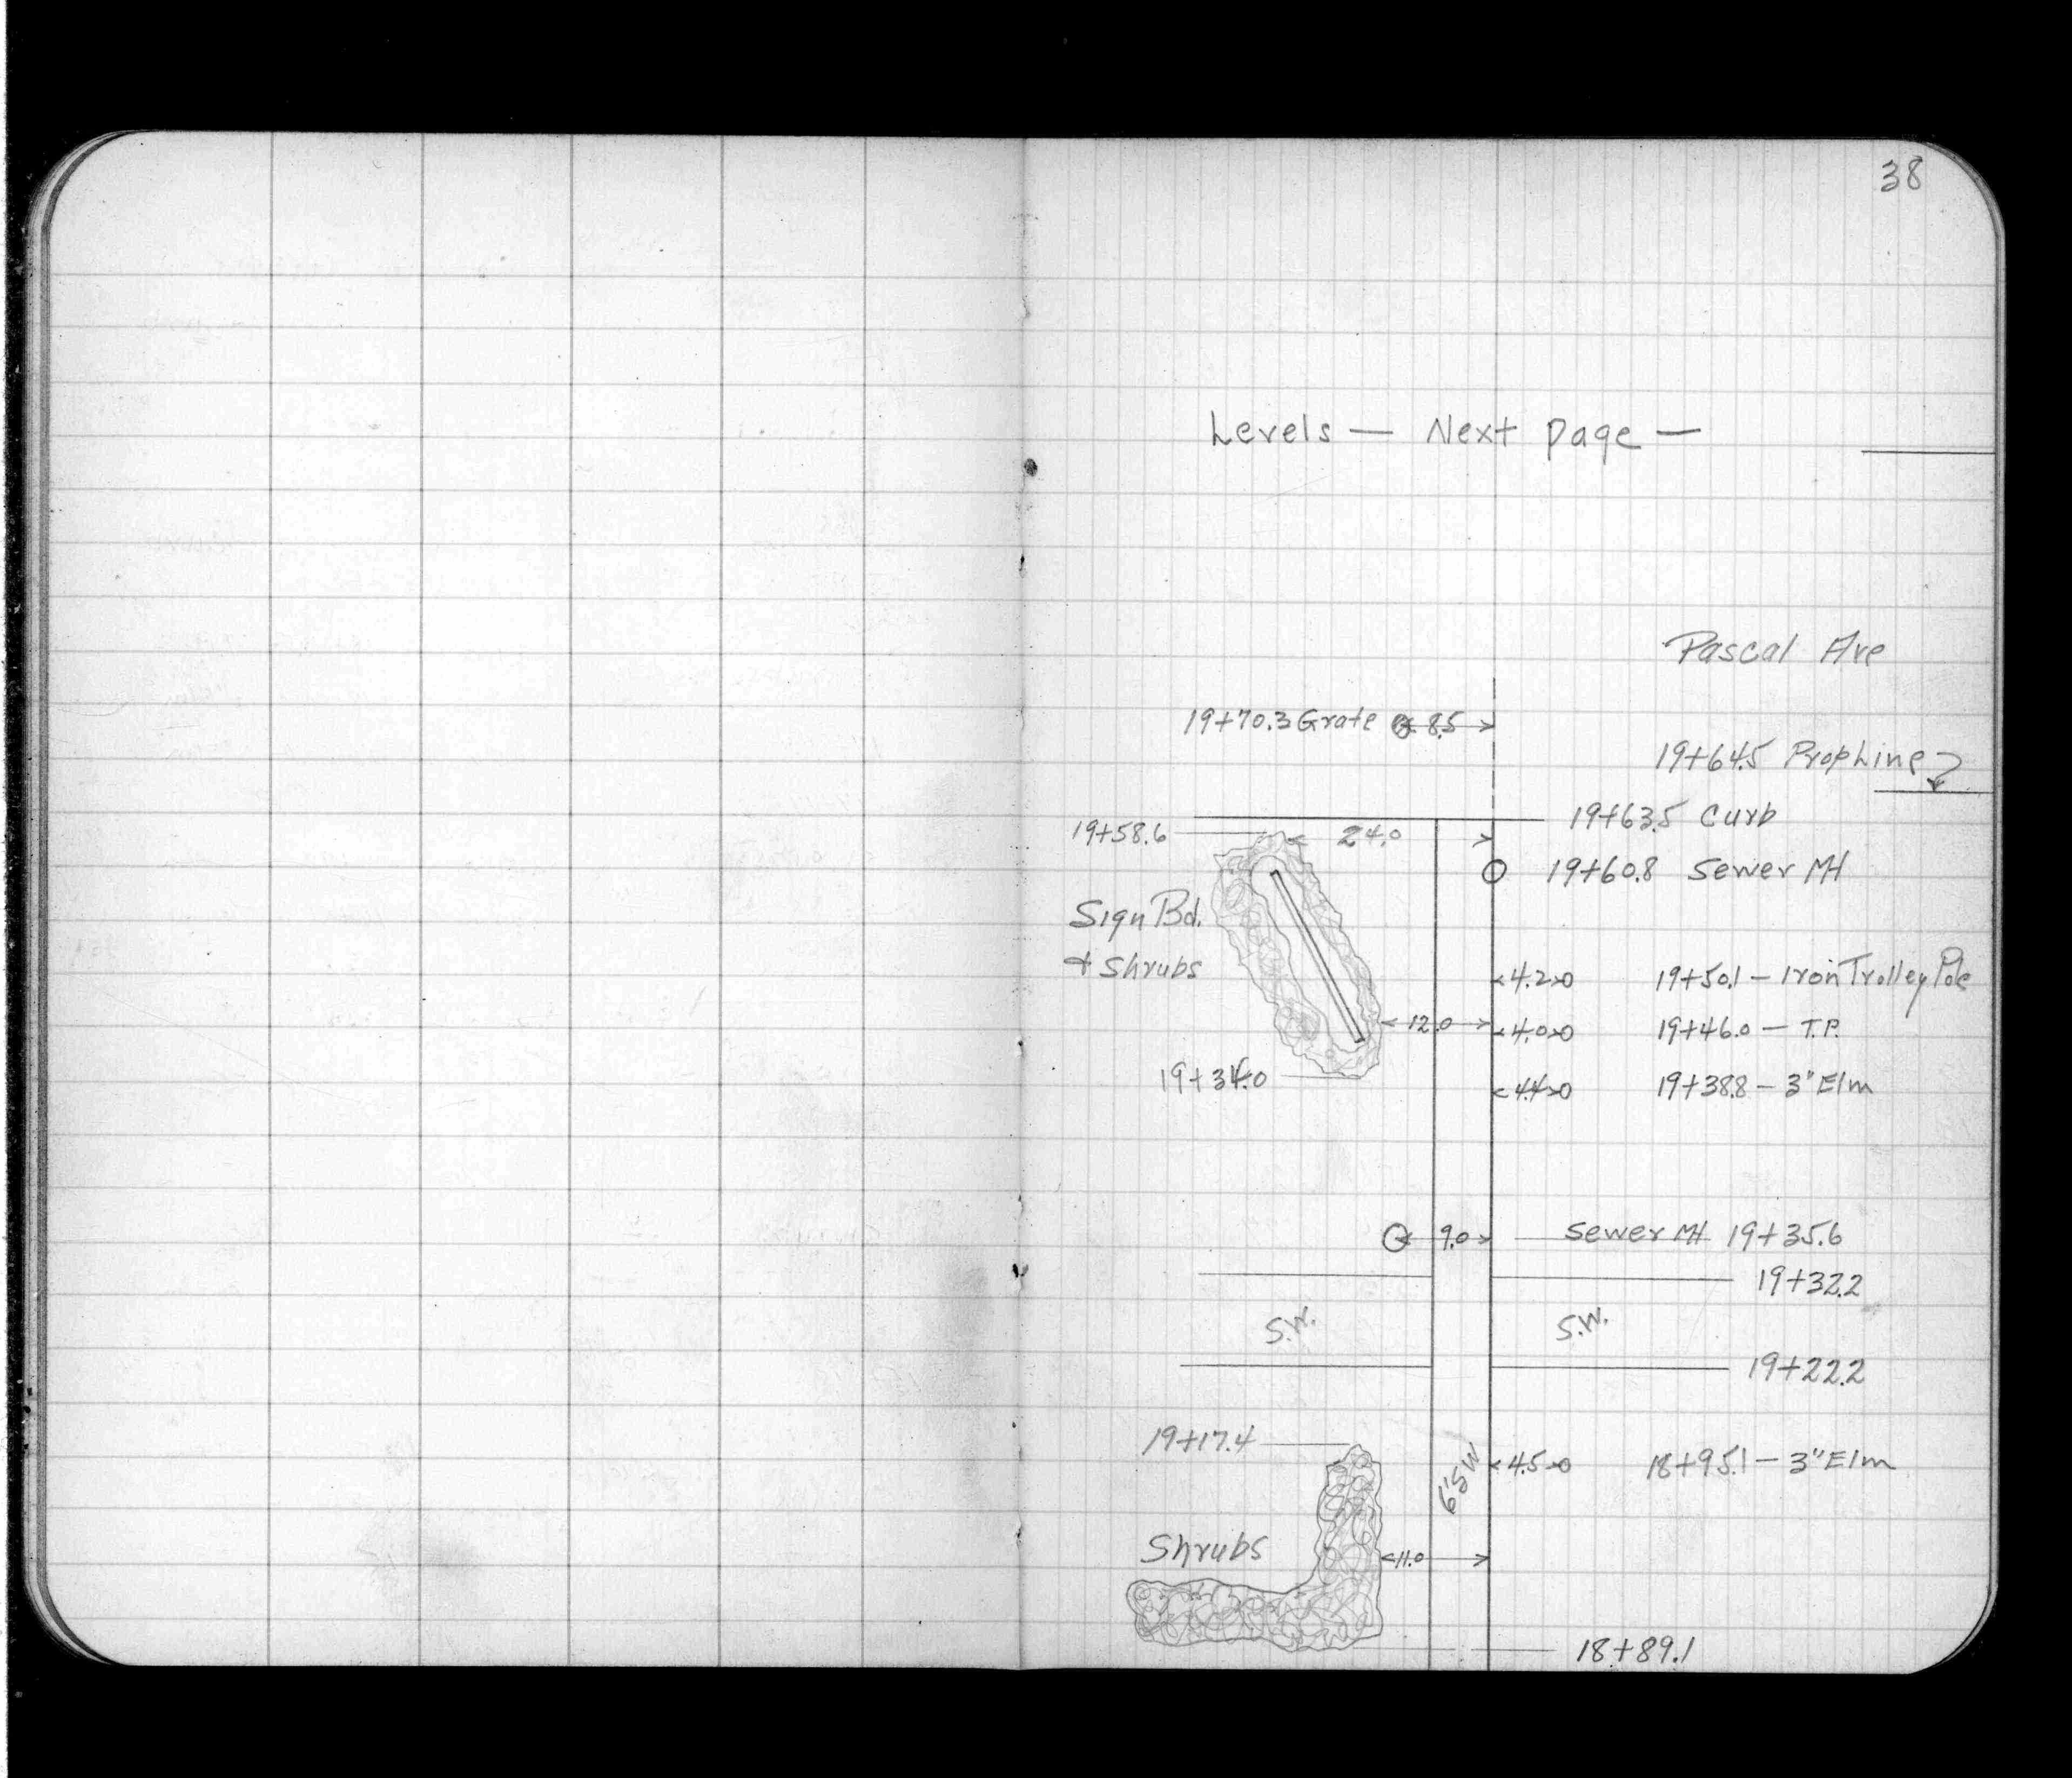 38
Levels — Next page —
Pascal Ave
19+70.3 Grate 8.5
19+64.5 Prop Line
19+63.5 Curb
19+58.6 24.0
19+60.8 Sewer MH
Sign Bd.
+ Shrubs
4.2 19+50.1 — Iron Trolley Pole
12.0 4.0 19+46.0 — T.P.
19+34.0 4.4 19+38.8 — 3" Elm
9.0 Sewer MH 19+35.6
19+32.2
S.W. S.W.
19+22.2
19+17.4
6' SW 4.5 18+95.1 — 3" Elm
Shrubs 11.0
18+89.1